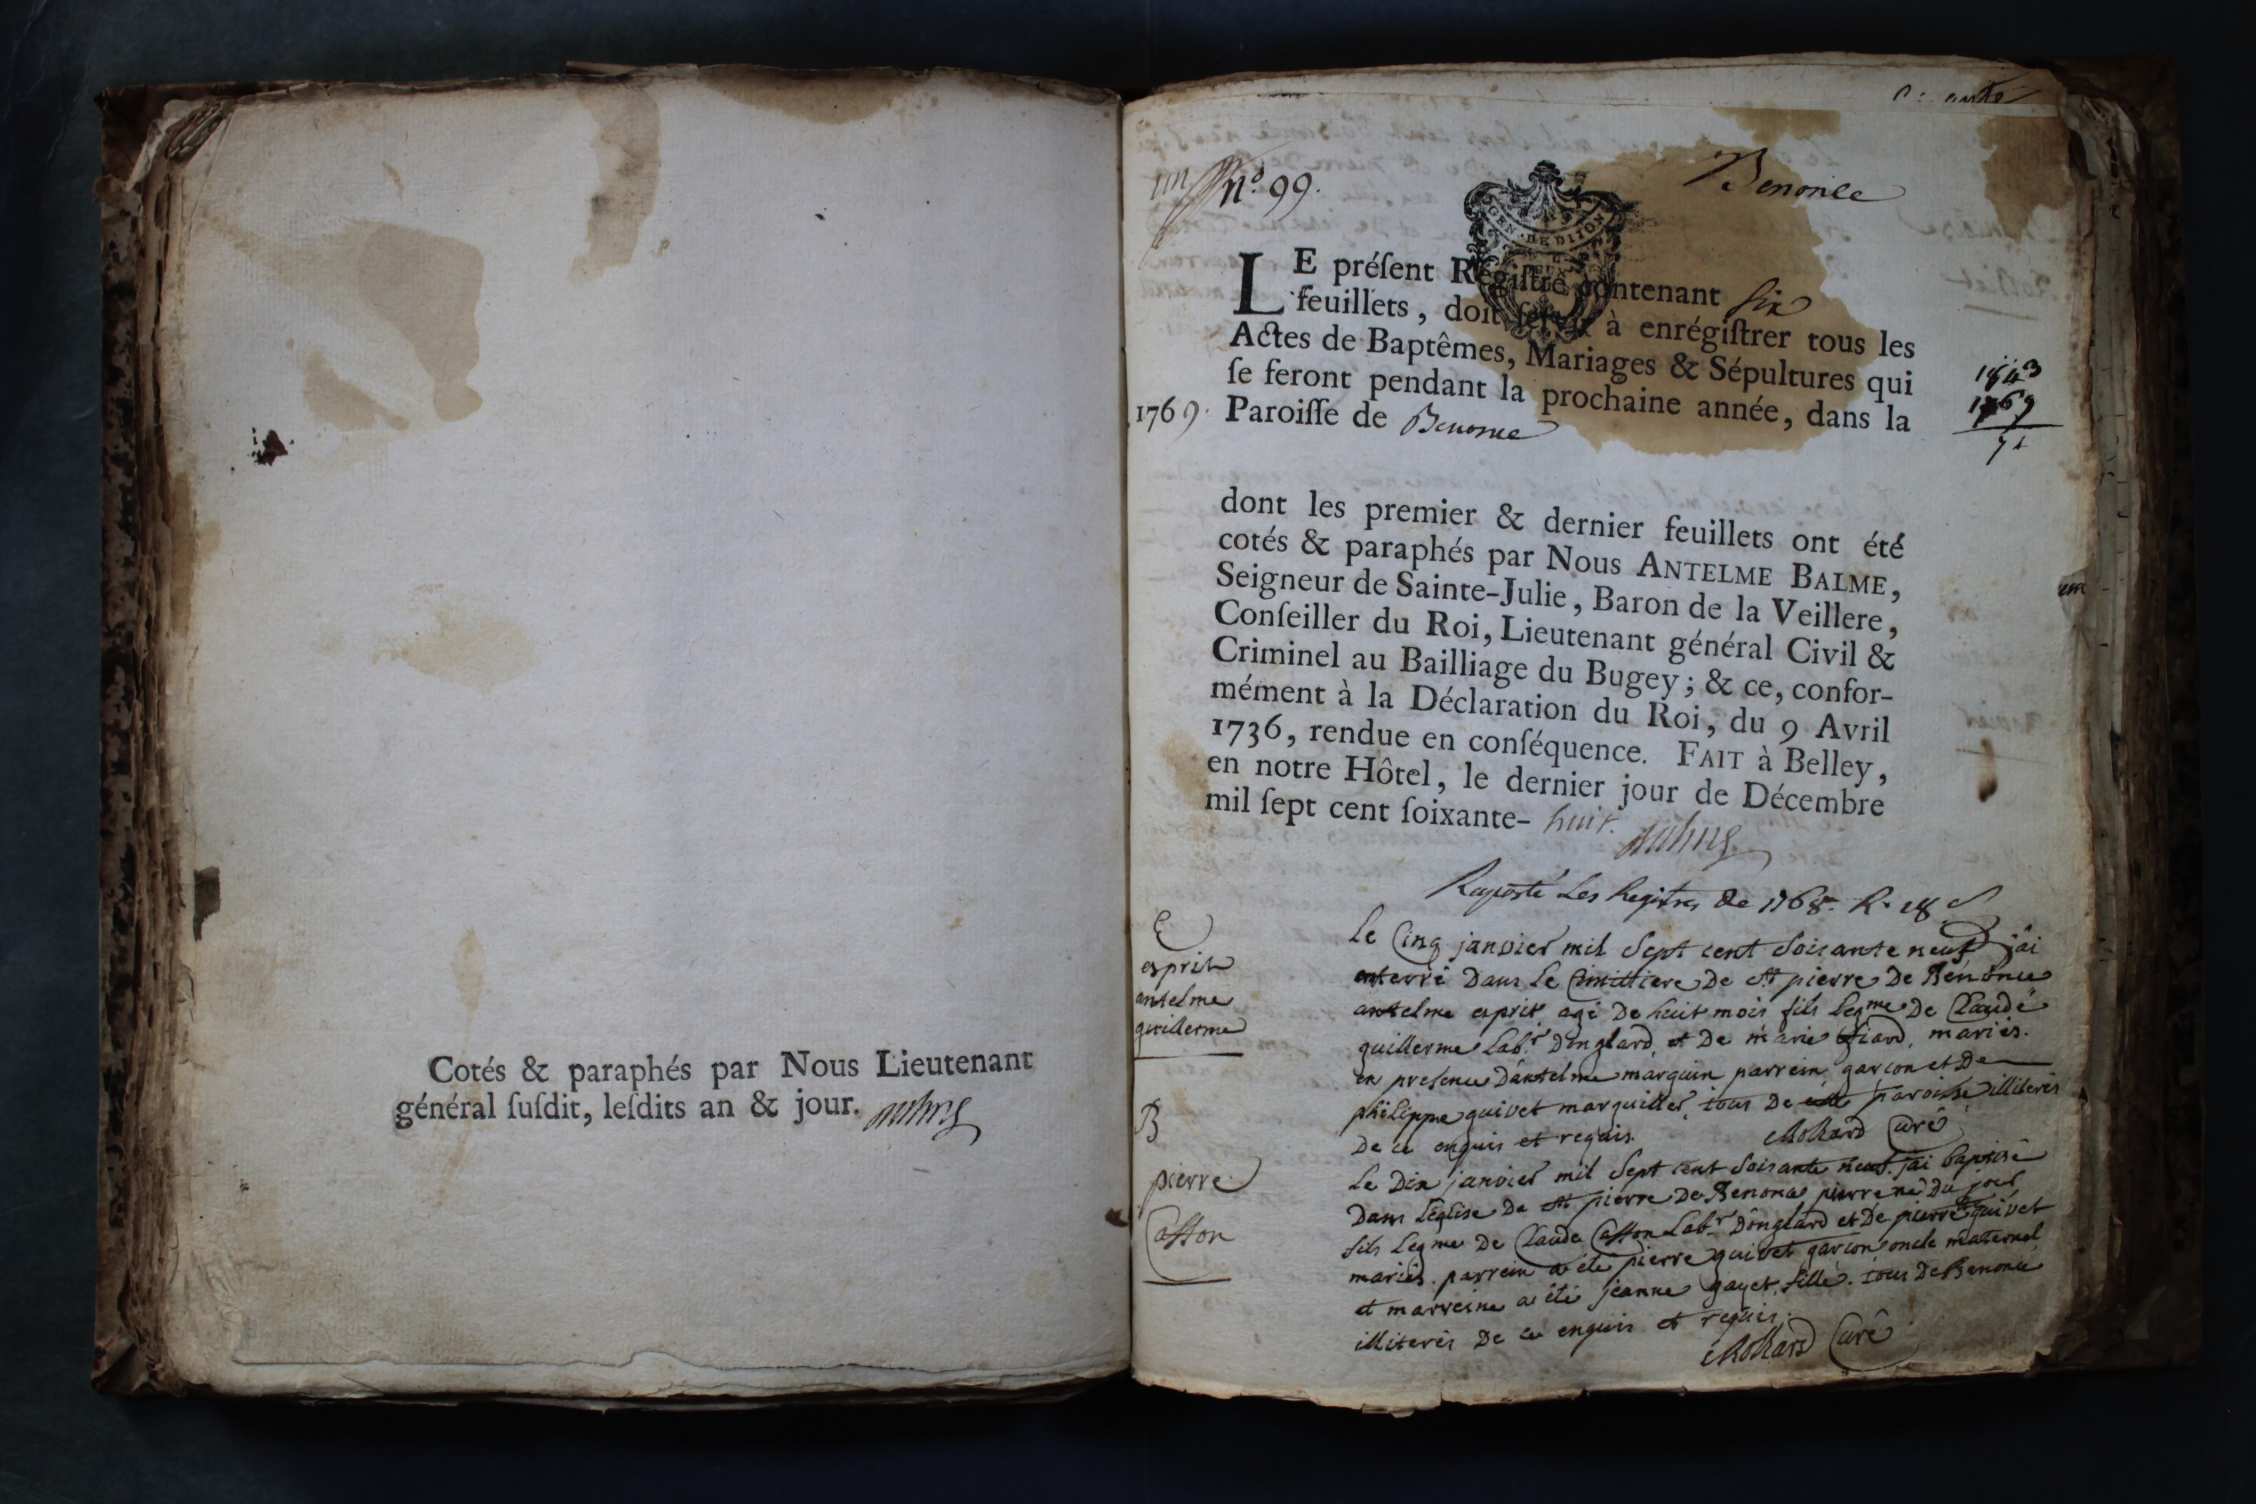 Cotés & paraphés par Nous Lieutenant
général ſuſdit, leſdits an & jour.
n.º 99.
Benonce
GEN. DE DIJON
LE préſent Régiſtre contenant ſix
feuillets, doit ſervir à enrégiſtrer tous les
Actes de Baptêmes, Mariages & Sépultures qui
ſe feront pendant la prochaine année, dans la
1769. Paroiſſe de Benonce
1843
1769
74
dont les premier & dernier feuillets ont été
cotés & paraphés par Nous ANTELME BALME,
Seigneur de Sainte-Julie, Baron de la Veillere,
Conſeiller du Roi, Lieutenant général Civil &
Criminel au Bailliage du Bugey; & ce, confor-
mément à la Déclaration du Roi, du 9 Avril
1736, rendue en conſéquence. FAIT à Belley,
en notre Hôtel, le dernier jour de Décembre
mil ſept cent ſoixante- huit.
Raporté les Regitres de 1768.
E
esprit
antelme
guillerme
le Cinq janvier mil sept cent soixante neuf j'ai
enterré dans le Cimittiere de st pierre de Benonce
antelme esprit agé de huit mois fils legme de Claude
guillerme labr d'onglard, et de marie, mariés.
en presence d'antelme marquin parrein, garçon et de
philippe quivet marguiller, tous de paroisse illiterés
de ce enquis et requis. Curé
B
pierre
Casson
le dix janvier mil sept cent soixante neuf. j'ai baptisé
dans l'église de st pierre de Benonce pierre né du jour
fils legme de Claude Casson labr d'onglard et de pierrette quivet
mariés. parrein a été pierre quivet garçon, oncle maternel,
et marreine a été jeanne gayet, fille. tous de Benonce
illiterés de ce enquis et requis.
Curé